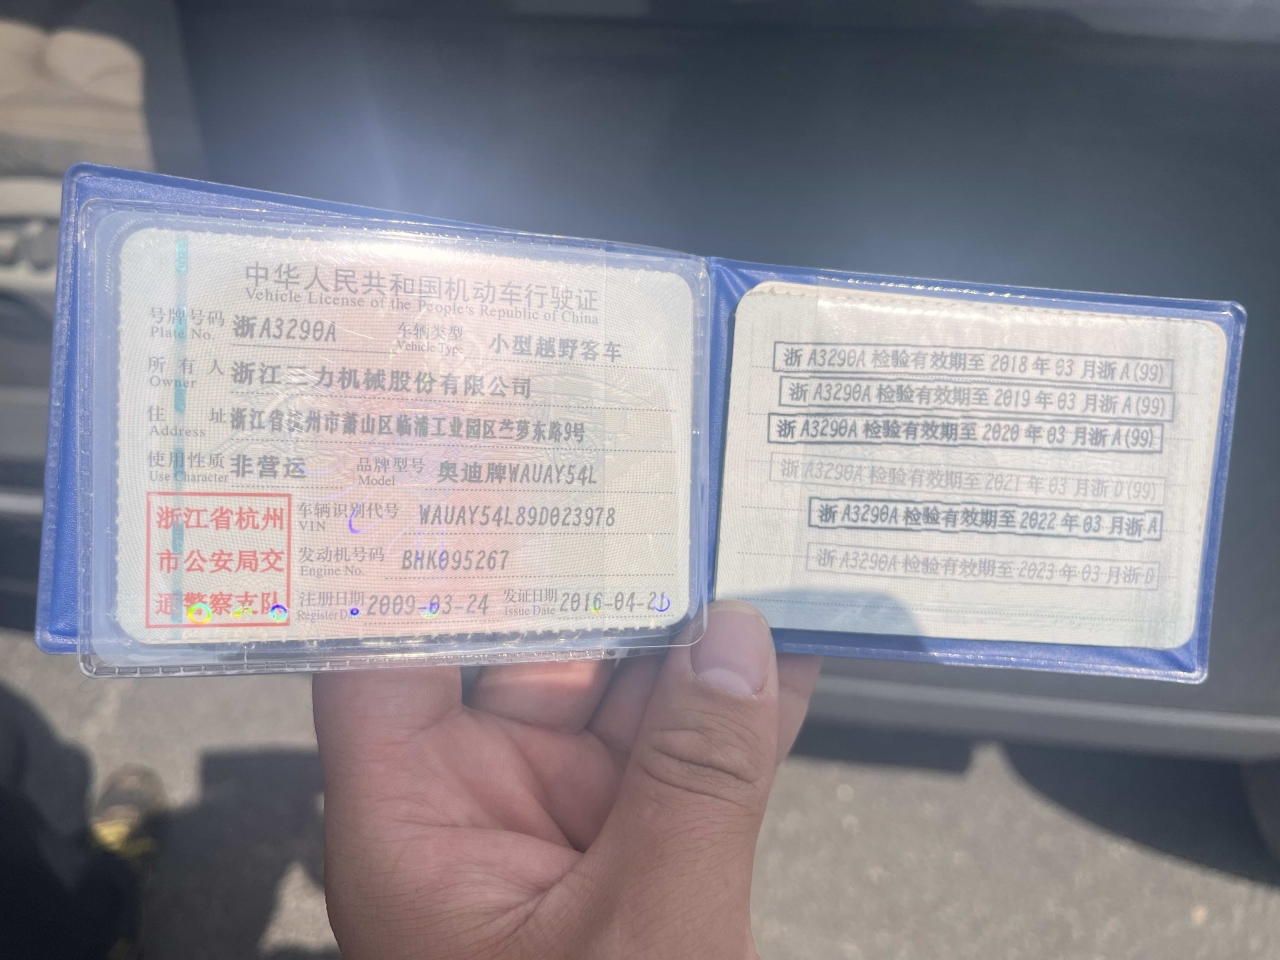 中华人民共和国机动车行驶证
Vehicle License of the People's Republic of China
号牌号码 浙A3290A 车辆类型 小型越野客车
Plate No. Vehicle Type
所有人 浙江三力机械股份有限公司
Owner
住址 浙江省杭州市萧山区临浦工业园区苎萝东路9号
Address
使用性质 非营运 品牌型号 奥迪牌WAUAY54L
Use Character Model
浙江省杭州
市公安局交
通警察支队
车辆识别代号 WAUAY54L89D023978
VIN
发动机号码 BHK095267
Engine No.
注册日期 2009-03-24 发证日期 2016-04-21
Register Date Issue Date
浙A3290A检验有效期至2018年03月浙A(99)
浙A3290A检验有效期至2019年03月浙A(99)
浙A3290A检验有效期至2020年03月浙A(99)
浙A3290A检验有效期至2021年03月浙D(99)
浙A3290A检验有效期至2022年03月浙A
浙A3290A检验有效期至2023年03月浙D